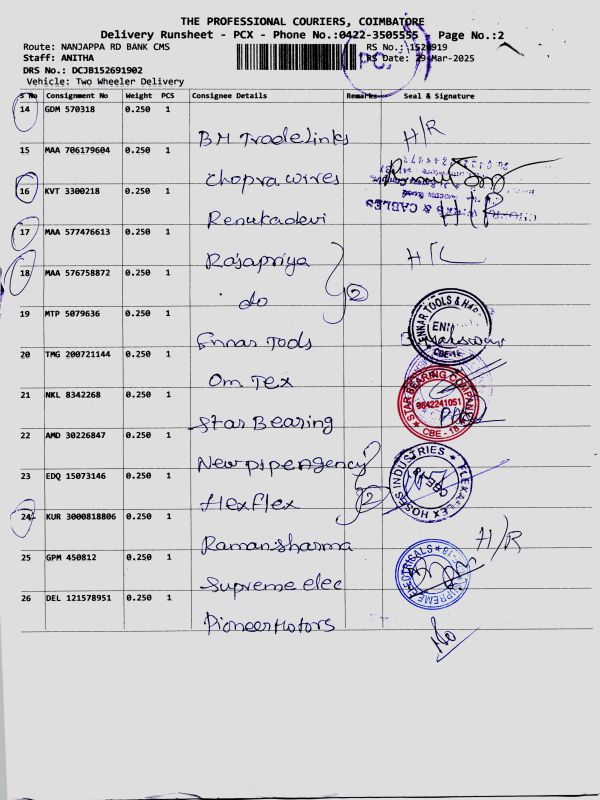 THE PROFESSIONAL COURIERS, COIMBATORE
Delivery Runsheet - PCX - Phone No.:0422-3505555 Page No.:2
Route: NANJAPPA RD BANK CMS
RS No.: 1526919
Staff: ANITHA
RS Date: 29-Mar-2025
DRS No.: DCJB152691902
Vehicle: Two Wheeler Delivery
S No Consignment No Weight PCS Consignee Details Remarks Seal & Signature
14 GDM 570318 0.250 1
BM Tradelinks H/R
15 MAA 706179604 0.250 1
Chopra wires
16 KVT 3300218 0.250 1
& CABLES
Renukadevi H/R
17 MAA 577476613 0.250 1
Rajapriya
18 MAA 576758872 0.250 1
do 2
19 MTP 5079636 0.250 1
ENKAR TOOLS &
CBE-18
Ennar Tools
20 TMG 200721144 0.250 1
Om Tex
21 NKL 8342268 0.250 1
STAR BEARING COMPANY
9842241051
CBE - 18
Star Bearing
22 AMD 30226847 0.250 1
Newpipe agency
23 EDQ 15073146 0.250 1
FLEX HOSES INDUSTRIES
Flexflex 2
24 KUR 3000818806 0.250 1
Raman sharma H/R
25 GPM 450812 0.250 1
SUPREME ELECTRICALS
Supreme elec
26 DEL 121578951 0.250 1
Pioneer Motors